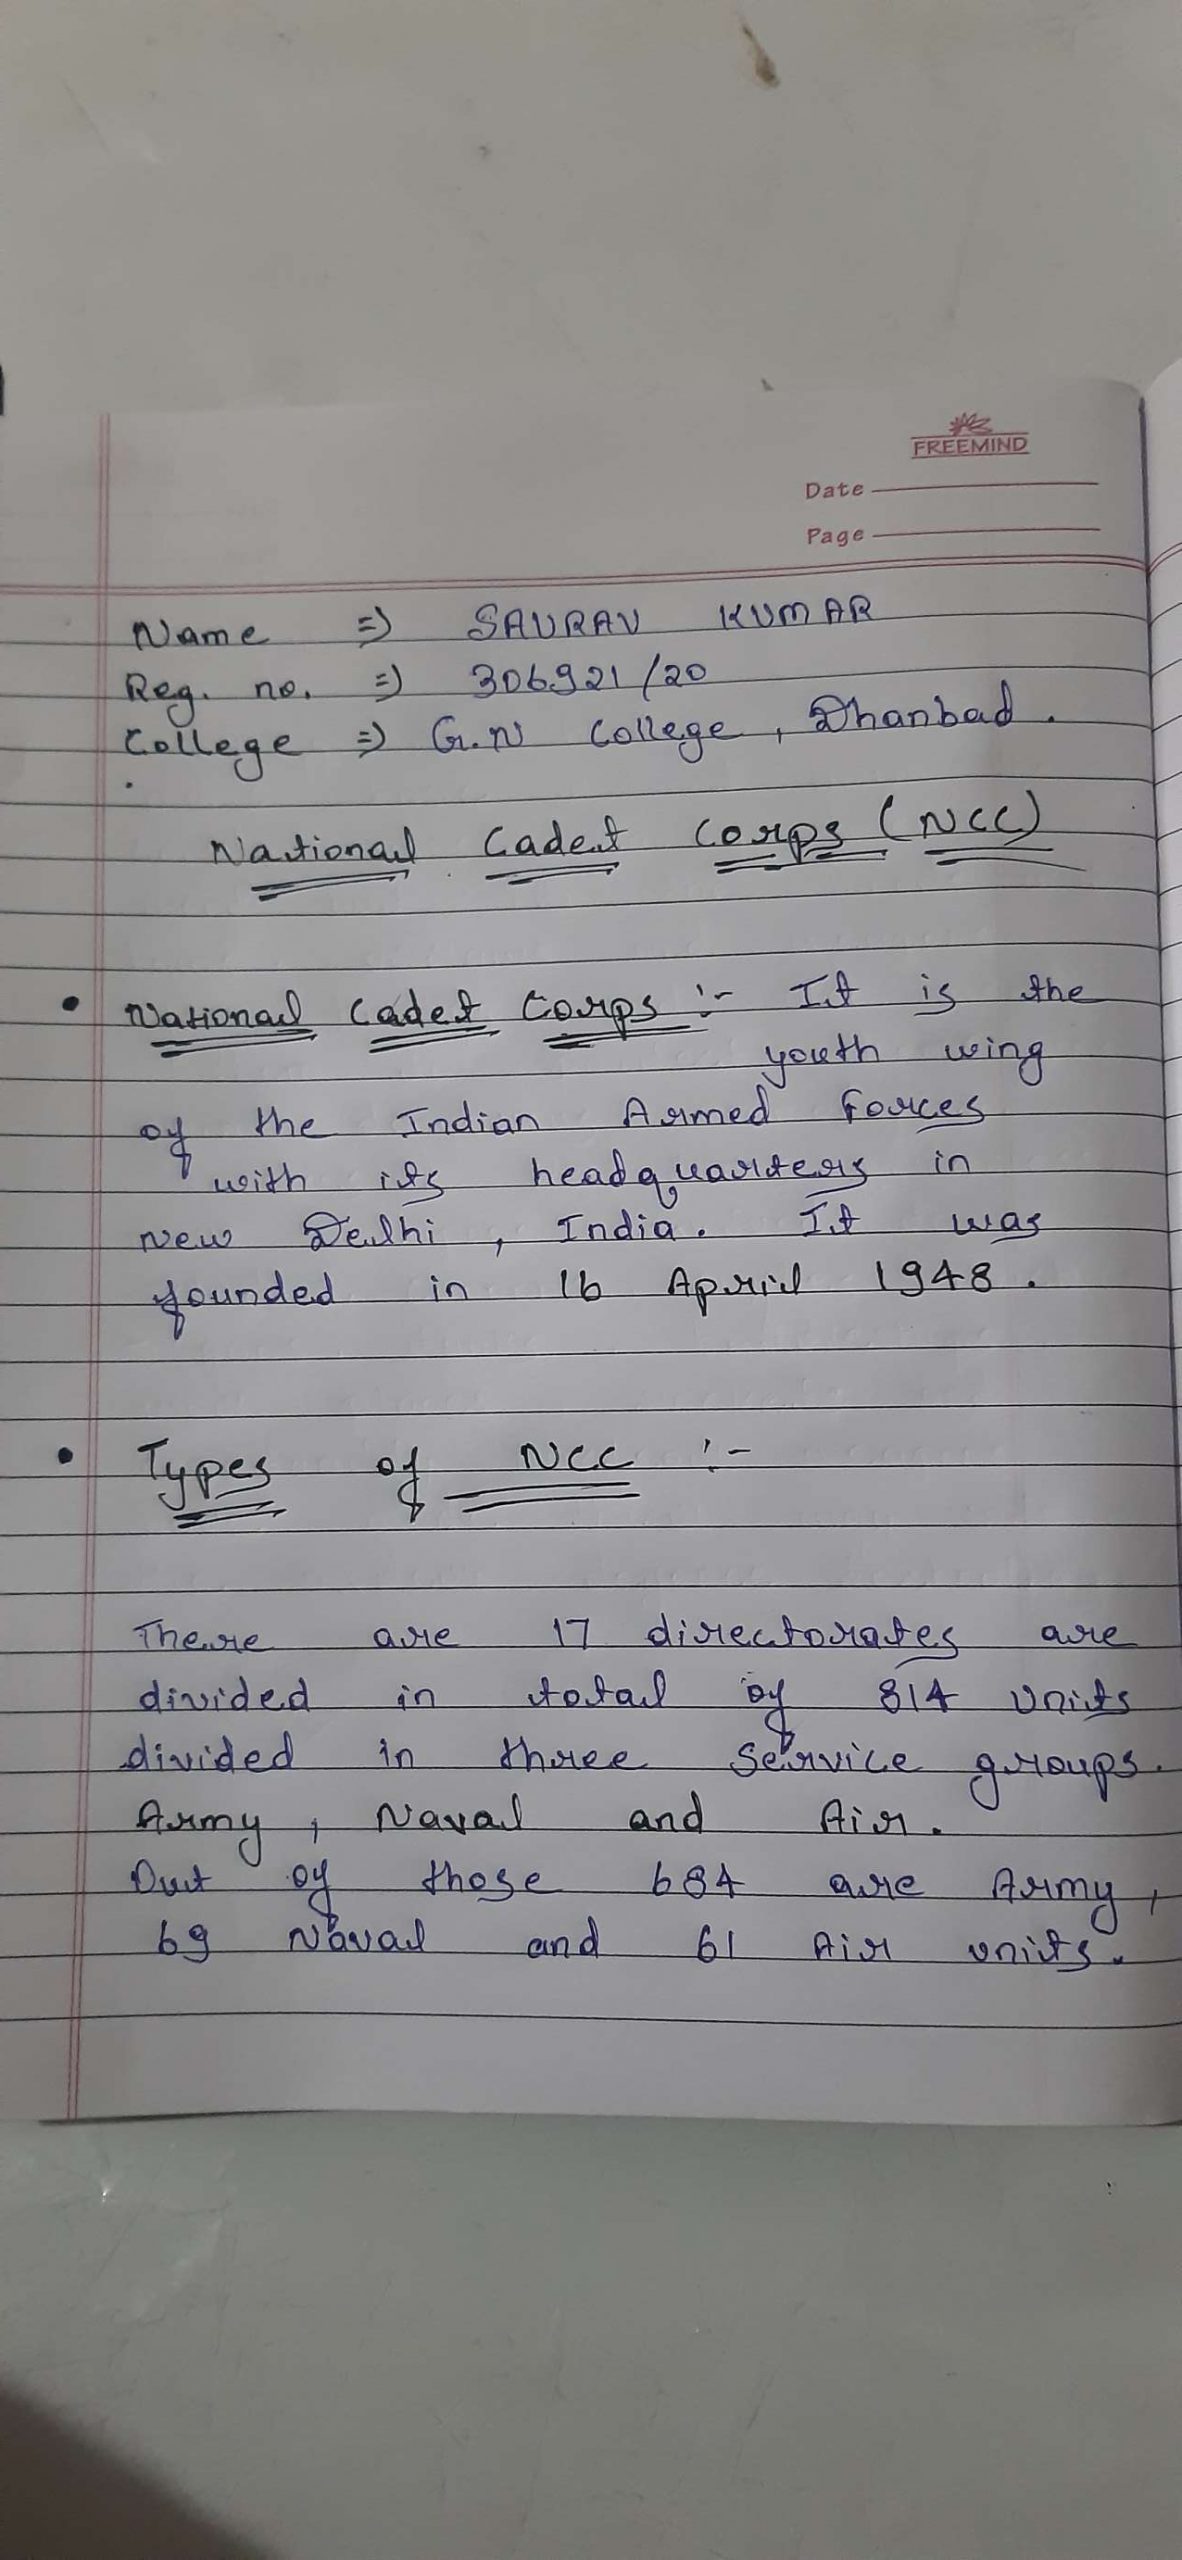 FREEMIND
Date
Page
Name => SAURAV KUMAR
Reg. no. => 306921/20
College => G.N College, Dhanbad.
National Cadet Corps (NCC)
• National Cadet Corps :- It is the
youth wing
of the Indian Armed Forces
with its headquarters in
New Delhi, India. It was
founded in 16 April 1948.
• Types of NCC :-
There are 17 directorates are
divided in total of 814 Units
divided in three Service groups.
Army, Naval and Air.
Out of those 684 are Army,
69 Naval and 61 Air units.